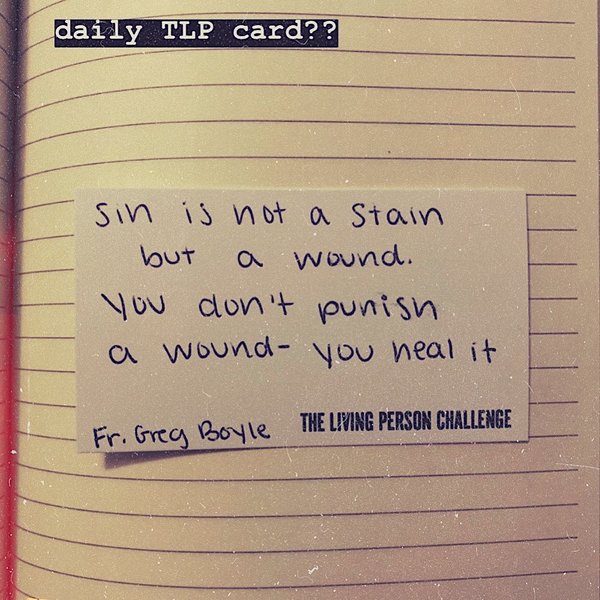 daily TLP card??
Sin is not a stain
but a wound.
You don't punish
a wound- you heal it
Fr. Greg Boyle
THE LIVING PERSON CHALLENGE